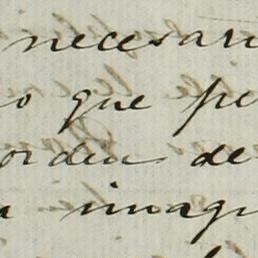 necesari
o que pe
orden de
a imagi